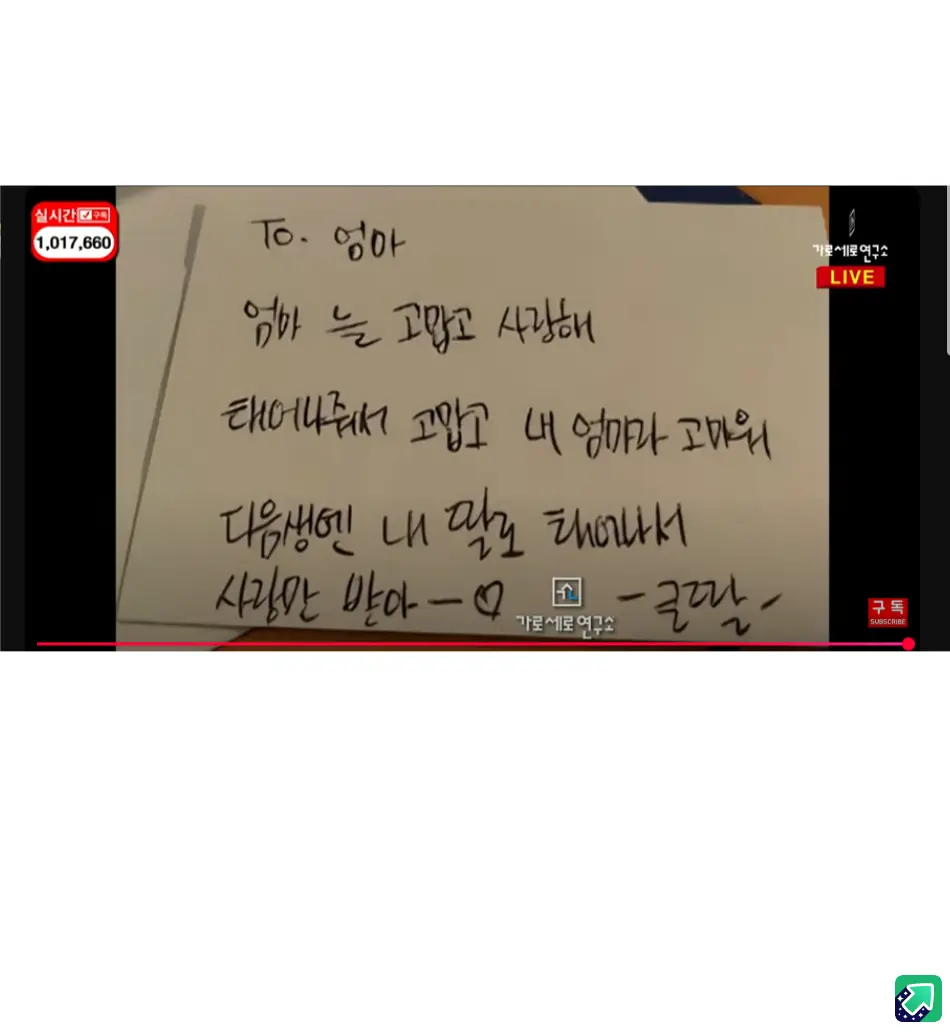 실시간 구독
1,017,660
가로세로연구소
LIVE
To. 엄마
엄마 늘 고맙고 사랑해
태어나줘서 고맙고 내 엄마라 고마워
다음생엔 내 딸로 태어나서
사랑만 받아 ー ♡ - 클딸 -
가로세로연구소
구독
SUBSCRIBE